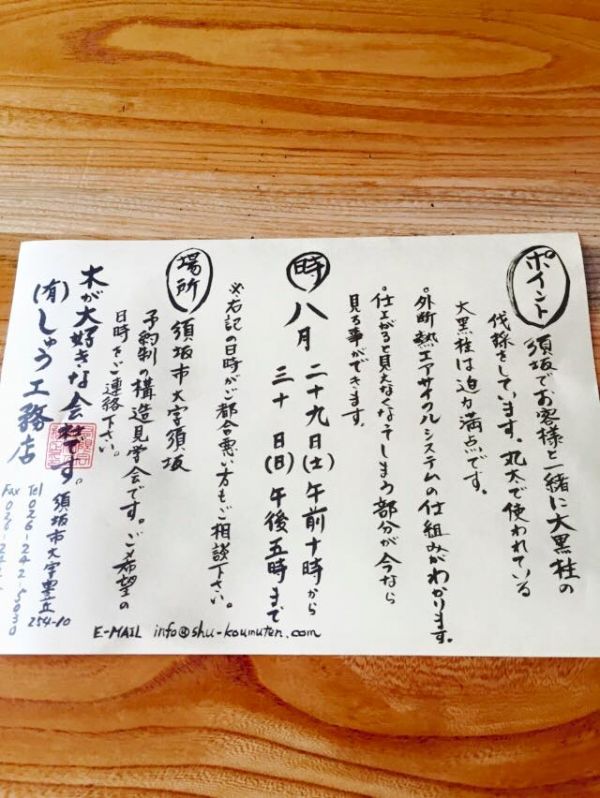 ポイント
須坂でお客様と一緒に大黒柱の
伐採をしています。丸太で使われている
大黒柱は迫力満点です。
◦外断熱エアサイクルシステムの仕組みがわかります。
◦仕上がると見えなくなってしまう部分が今なら
見る事ができます。
時
八月 二十九日(土)午前十時から
三十日(日)午後五時まで
※右記の日時がご都合悪い方もご相談下さい。
場所
須坂市大字須坂
予約制の構造見学会です。ご希望の
日時をご連絡下さい。
木が大好きな会社です。
(有)しゅう工務店
須坂市大字豊丘254-10
Tel 026-242-5030
Fax 026-242-
E-MAIL info@shu-koumuten.com